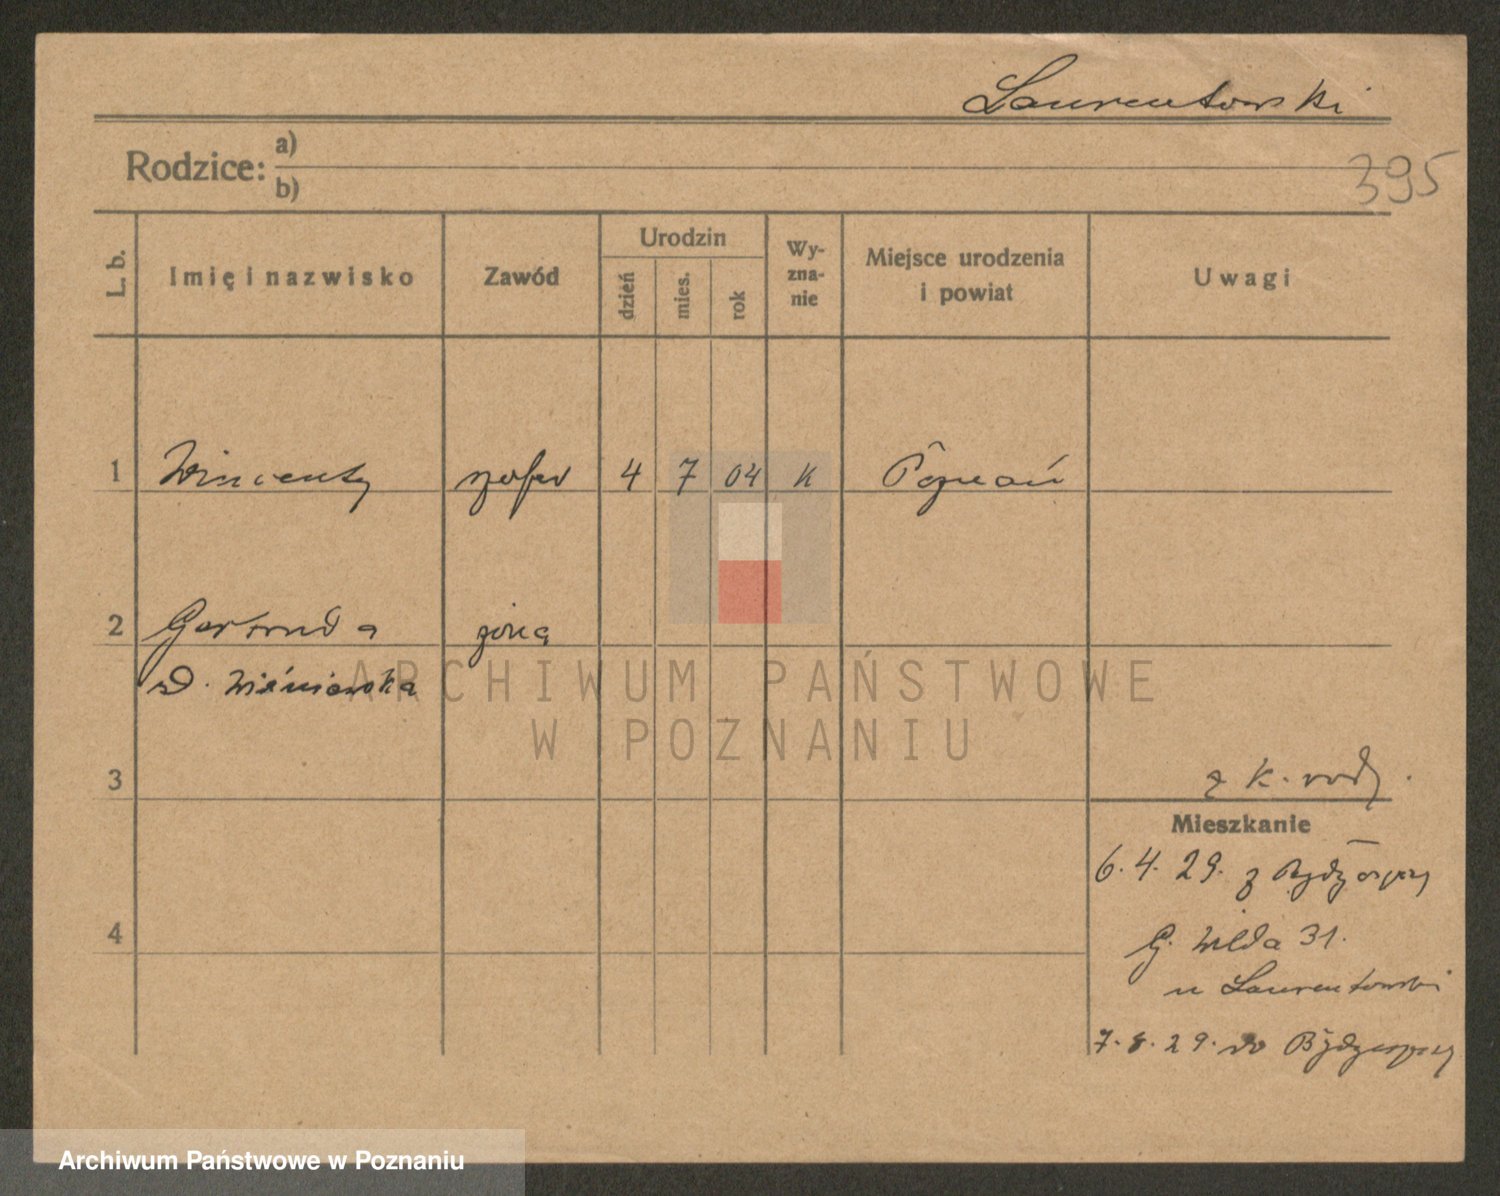 Laurentowski
395
Rodzice: a)
b)
L. b. Imię i nazwisko Zawód Urodzin dzień mies. rok Wy-zna-nie Miejsce urodzenia i powiat Uwagi
1 Wincenty szofer 4 7 04 K Poznań
2 Gertruda żona
z d. Wiśniewska
3
z k. rodz.
Mieszkanie
4
6.4.29. z Bydgoszczy
G. Wilda 31.
u Laurentowski
7.8.29. do Bydgoszczy
ARCHIWUM PAŃSTWOWE
W POZNANIU
Archiwum Państwowe w Poznaniu